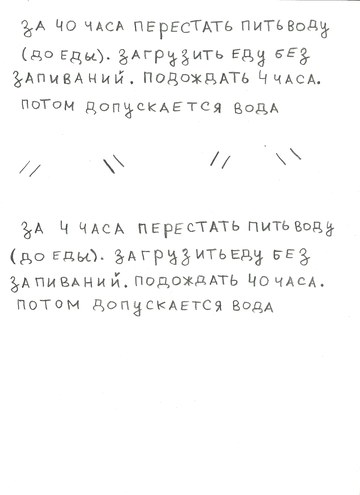 ЗА 40 ЧАСА ПЕРЕСТАТЬ ПИТЬ ВОДУ
(ДО ЕДЫ). ЗАГРУЗИТЬ ЕДУ БЕЗ
ЗАПИВАНИЙ. ПОДОЖДАТЬ 4 ЧАСА.
ПОТОМ ДОПУСКАЕТСЯ ВОДА
// \\ // \\
ЗА 4 ЧАСА ПЕРЕСТАТЬ ПИТЬ ВОДУ
(ДО ЕДЫ). ЗАГРУЗИТЬ ЕДУ БЕЗ
ЗАПИВАНИЙ. ПОДОЖДАТЬ 40 ЧАСА.
ПОТОМ ДОПУСКАЕТСЯ ВОДА